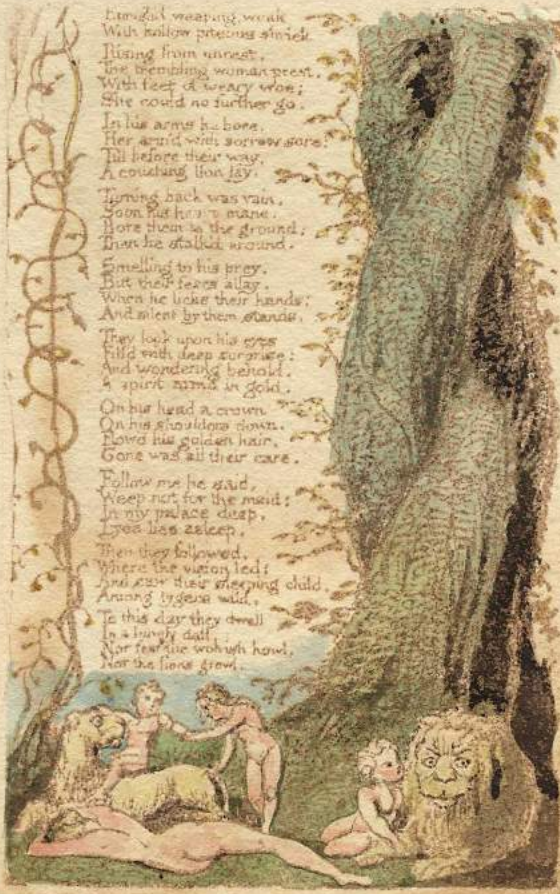 Famish'd, weeping, weak
With hollow piteous shriek
Rising from unrest,
The trembling woman prest,
With feet of weary woe;
She could no further go.
In his arms he bore,
Her arm'd with sorrow sore;
Till before their way,
A couching lion lay.
Turning back was vain,
Soon his heavy mane,
Bore them to the ground;
Then he stalk'd around.
Smelling to his prey,
But their fears allay,
When he licks their hands;
And silent by them stands.
They look upon his eyes
Fill'd with deep surprise:
And wondering behold,
A spirit arm'd in gold.
On his head a crown
On his shoulders down,
Flow'd his golden hair,
Gone was all their care.
Follow me he said,
Weep not for the maid;
In my palace deep,
Lyca lies asleep.
Then they followed,
Where the vision led;
And saw their sleeping child,
Among tygers wild.
To this day they dwell
In a lonely dell
Nor fear the wolvish howl,
Nor the lions growl.